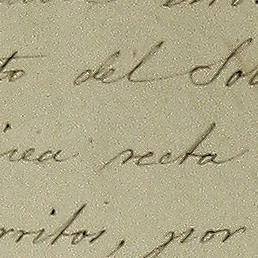 to del Sol
inea recta
rritos, por